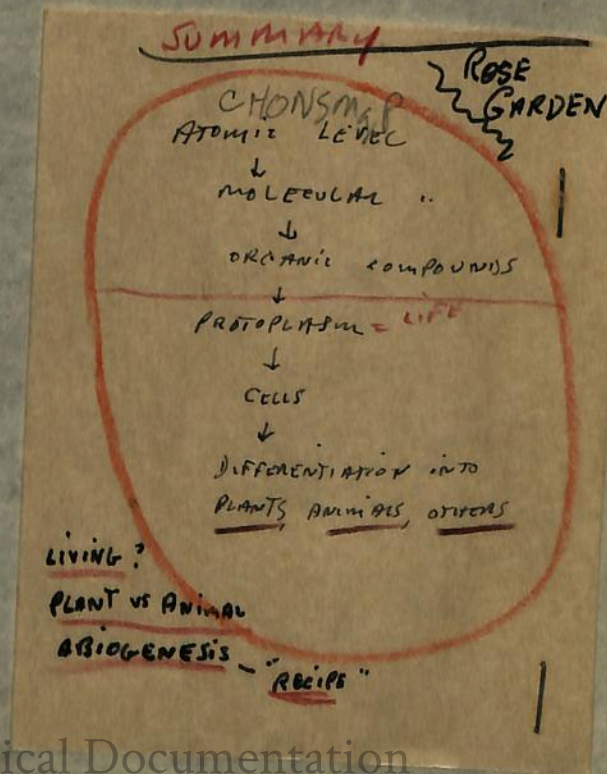 SUMMARY
ROSE
GARDEN
CHONSMgP
ATOMIC LEVEL
↓
MOLECULAR "
↓
ORGANIC COMPOUNDS
↓
PROTOPLASM = LIFE
↓
CELLS
↓
DIFFERENTIATION INTO
PLANTS, ANIMALS, OTHERS
LIVING?
PLANT VS ANIMAL
ABIOGENESIS - "RECIPE"
ical Documentation